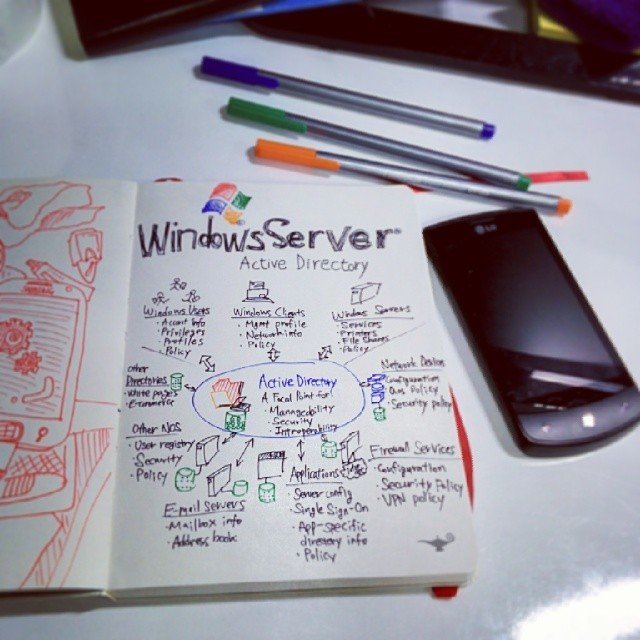 WindowsServer
Active Directory
Windows Users
• Account info
• Privileges
• Profiles
• Policy
Windows Clients
• Mgmt profile
• Network info
• Policy
Windows Servers
• Services
• Printers
• File Shares
• Policy
Other
Directories
• White pages
• E-commerce
Active Directory
A Focal Point for
• Manageability
• Security
• Interoperability
Network Devices
Configuration
QoS Policy
• Security policy
Other NOS
• User registry
• Security
• Policy
Firewall Services
• Configuration
• Security Policy
• VPN policy
E-mail Servers
• Mailbox info
• Address book
Applications
• Server config
• Single Sign-On
• App-specific
directory info
• Policy
LG